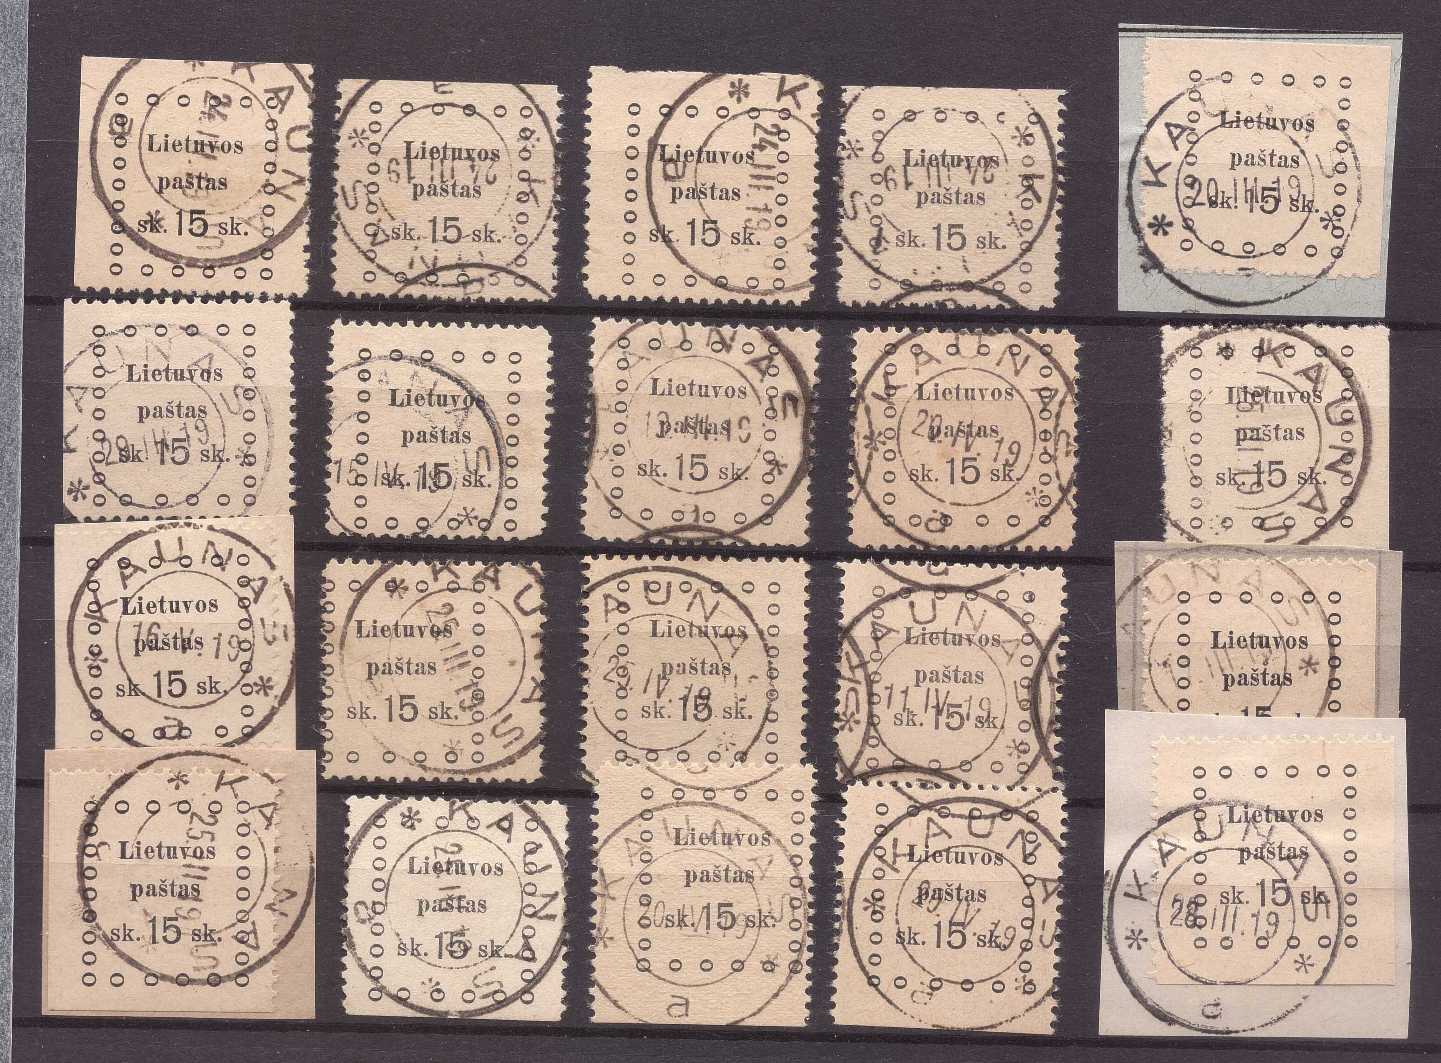 Lietuvos
paštas
sk. 15 sk.
KAUNAS
24.III.19
a
Lietuvos
paštas
sk. 15 sk.
24.III.19
Lietuvos
paštas
sk. 15 sk.
24.III.19
a
Lietuvos
paštas
sk. 15 sk.
24.III.19
Lietuvos
paštas
sk. 15 sk.
KAUNAS
20.III.19
Lietuvos
paštas
sk. 15 sk.
KAUNAS
29.IV.19
Lietuvos
paštas
sk. 15 sk.
15.IV.19
Lietuvos
paštas
sk. 15 sk.
KAUNAS
Lietuvos
paštas
sk. 15 sk.
KAUNAS
a
Lietuvos
paštas
sk. 15 sk.
KAUNAS
Lietuvos
paštas
sk. 15 sk.
KAUNAS
a
Lietuvos
paštas
sk. 15 sk.
KAUNAS
Lietuvos
paštas
sk. 15 sk.
Lietuvos
paštas
sk. 15 sk.
KAUNAS
11.IV.19
Lietuvos
paštas
15
Lietuvos
paštas
sk. 15 sk.
KAUNAS
25.III.19
Lietuvos
paštas
sk. 15 sk.
KAUNAS
a
Lietuvos
paštas
sk. 15 sk.
KAUNAS
20.IV.19
a
Lietuvos
paštas
sk. 15 sk.
KAUNAS
a
Lietuvos
paštas
sk. 15 sk.
KAUNAS
28.III.19
a